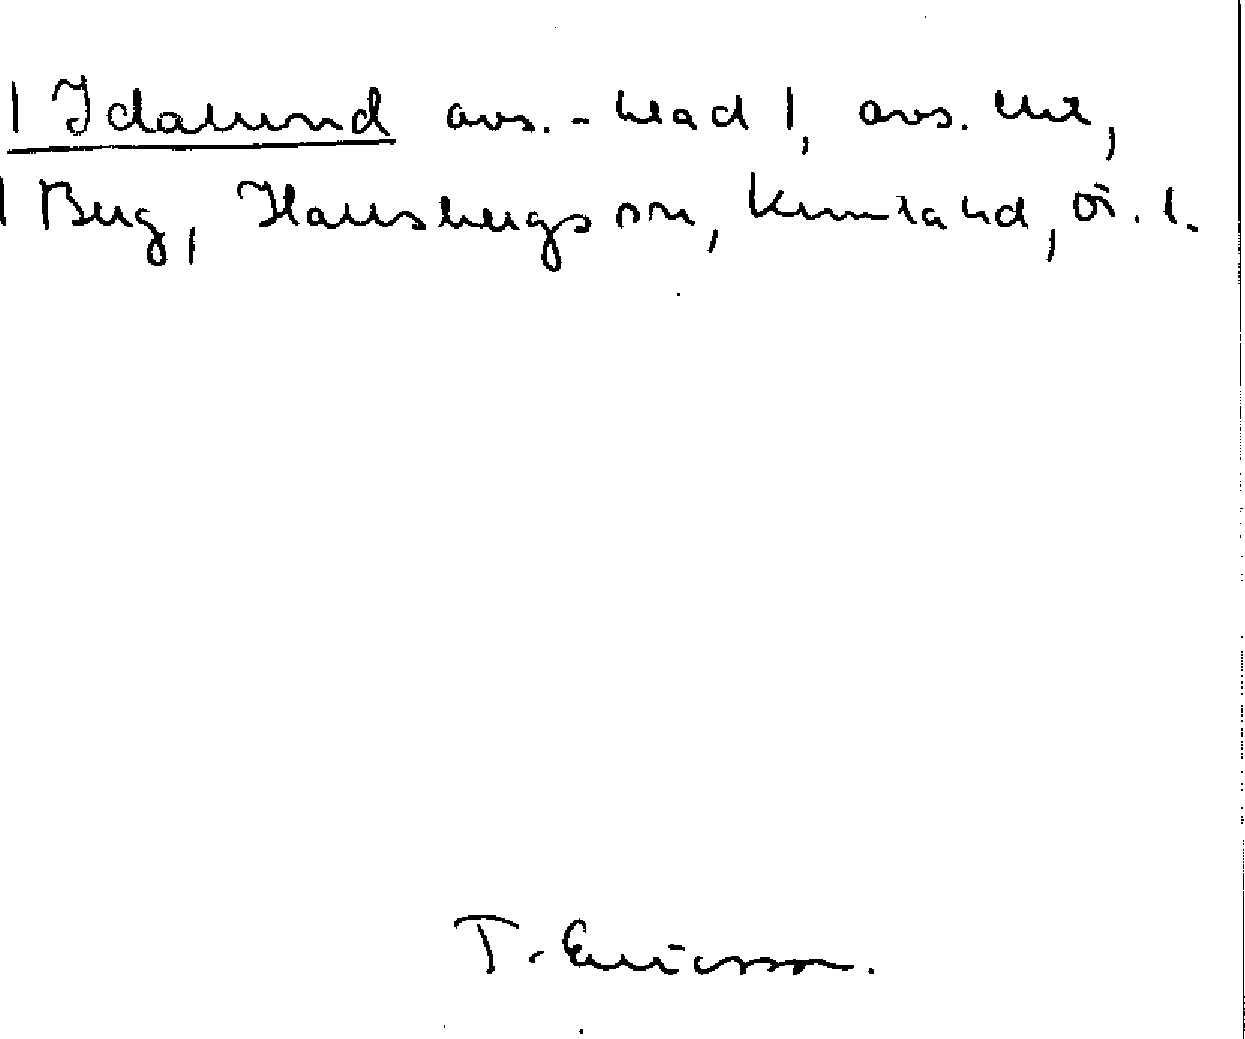 1 Idalund avs. - blad 1, avs. ehr,
1 Berg, Hallsbergs sn, Kumla hd, Ör. l.
T. Ericsson.